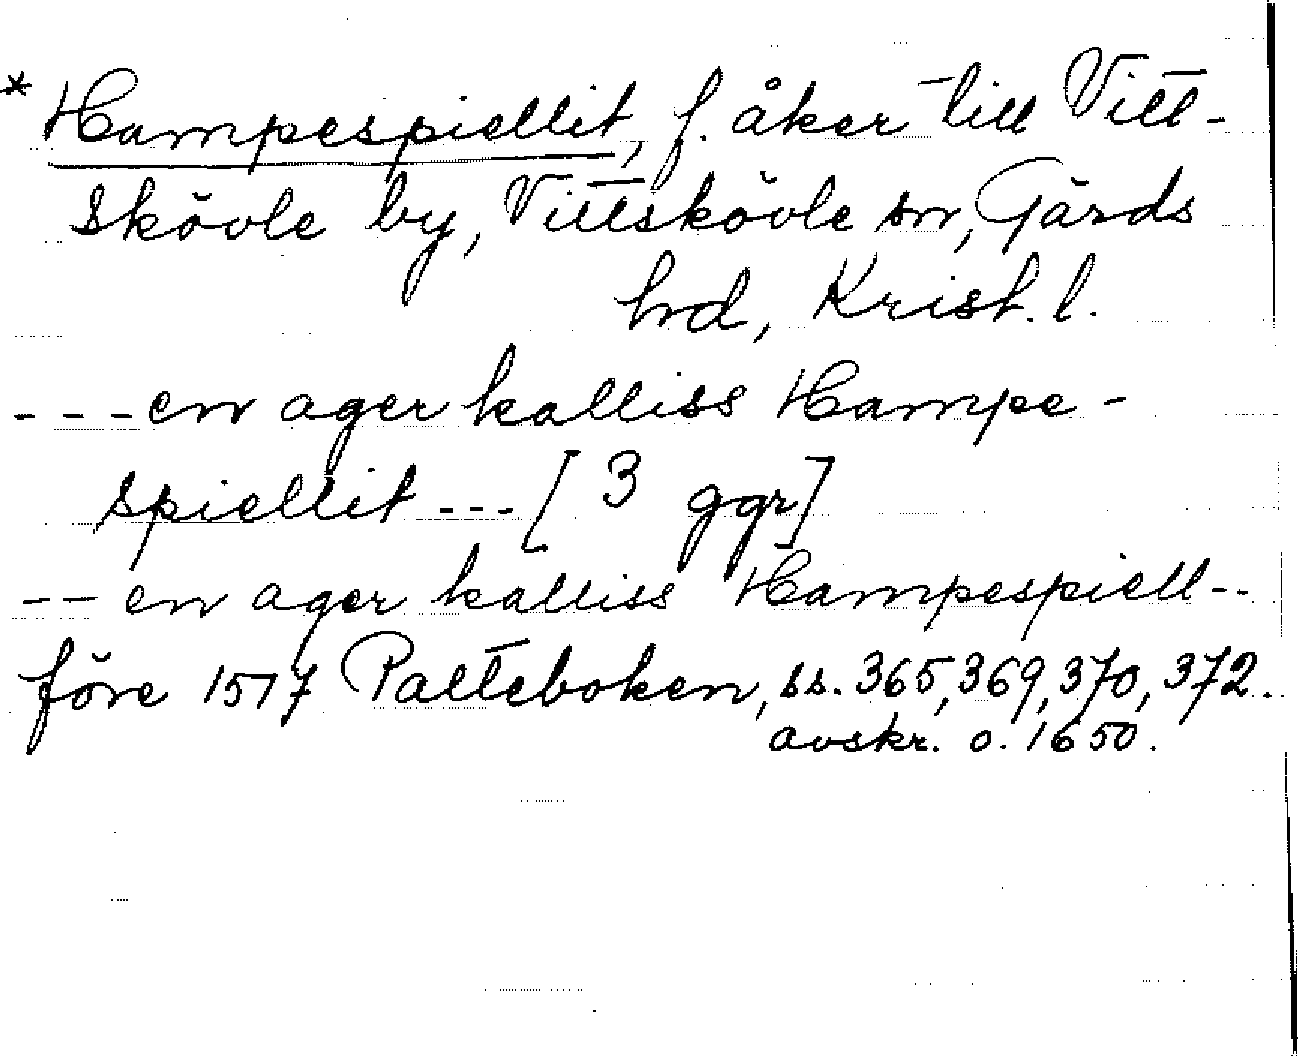 * Hampespiellit, f. åker till Vitt-
skövle by, Vittskövle sn, Gärds
hrd, Krist. l.
- - - en ager kalliss Hampe-
spiellit - - - [3 ggr]
-- en ager kalliss Hampespiell--
före 1517 Palteboken, ss. 365, 369, 370, 372.
avskr. o. 1650.